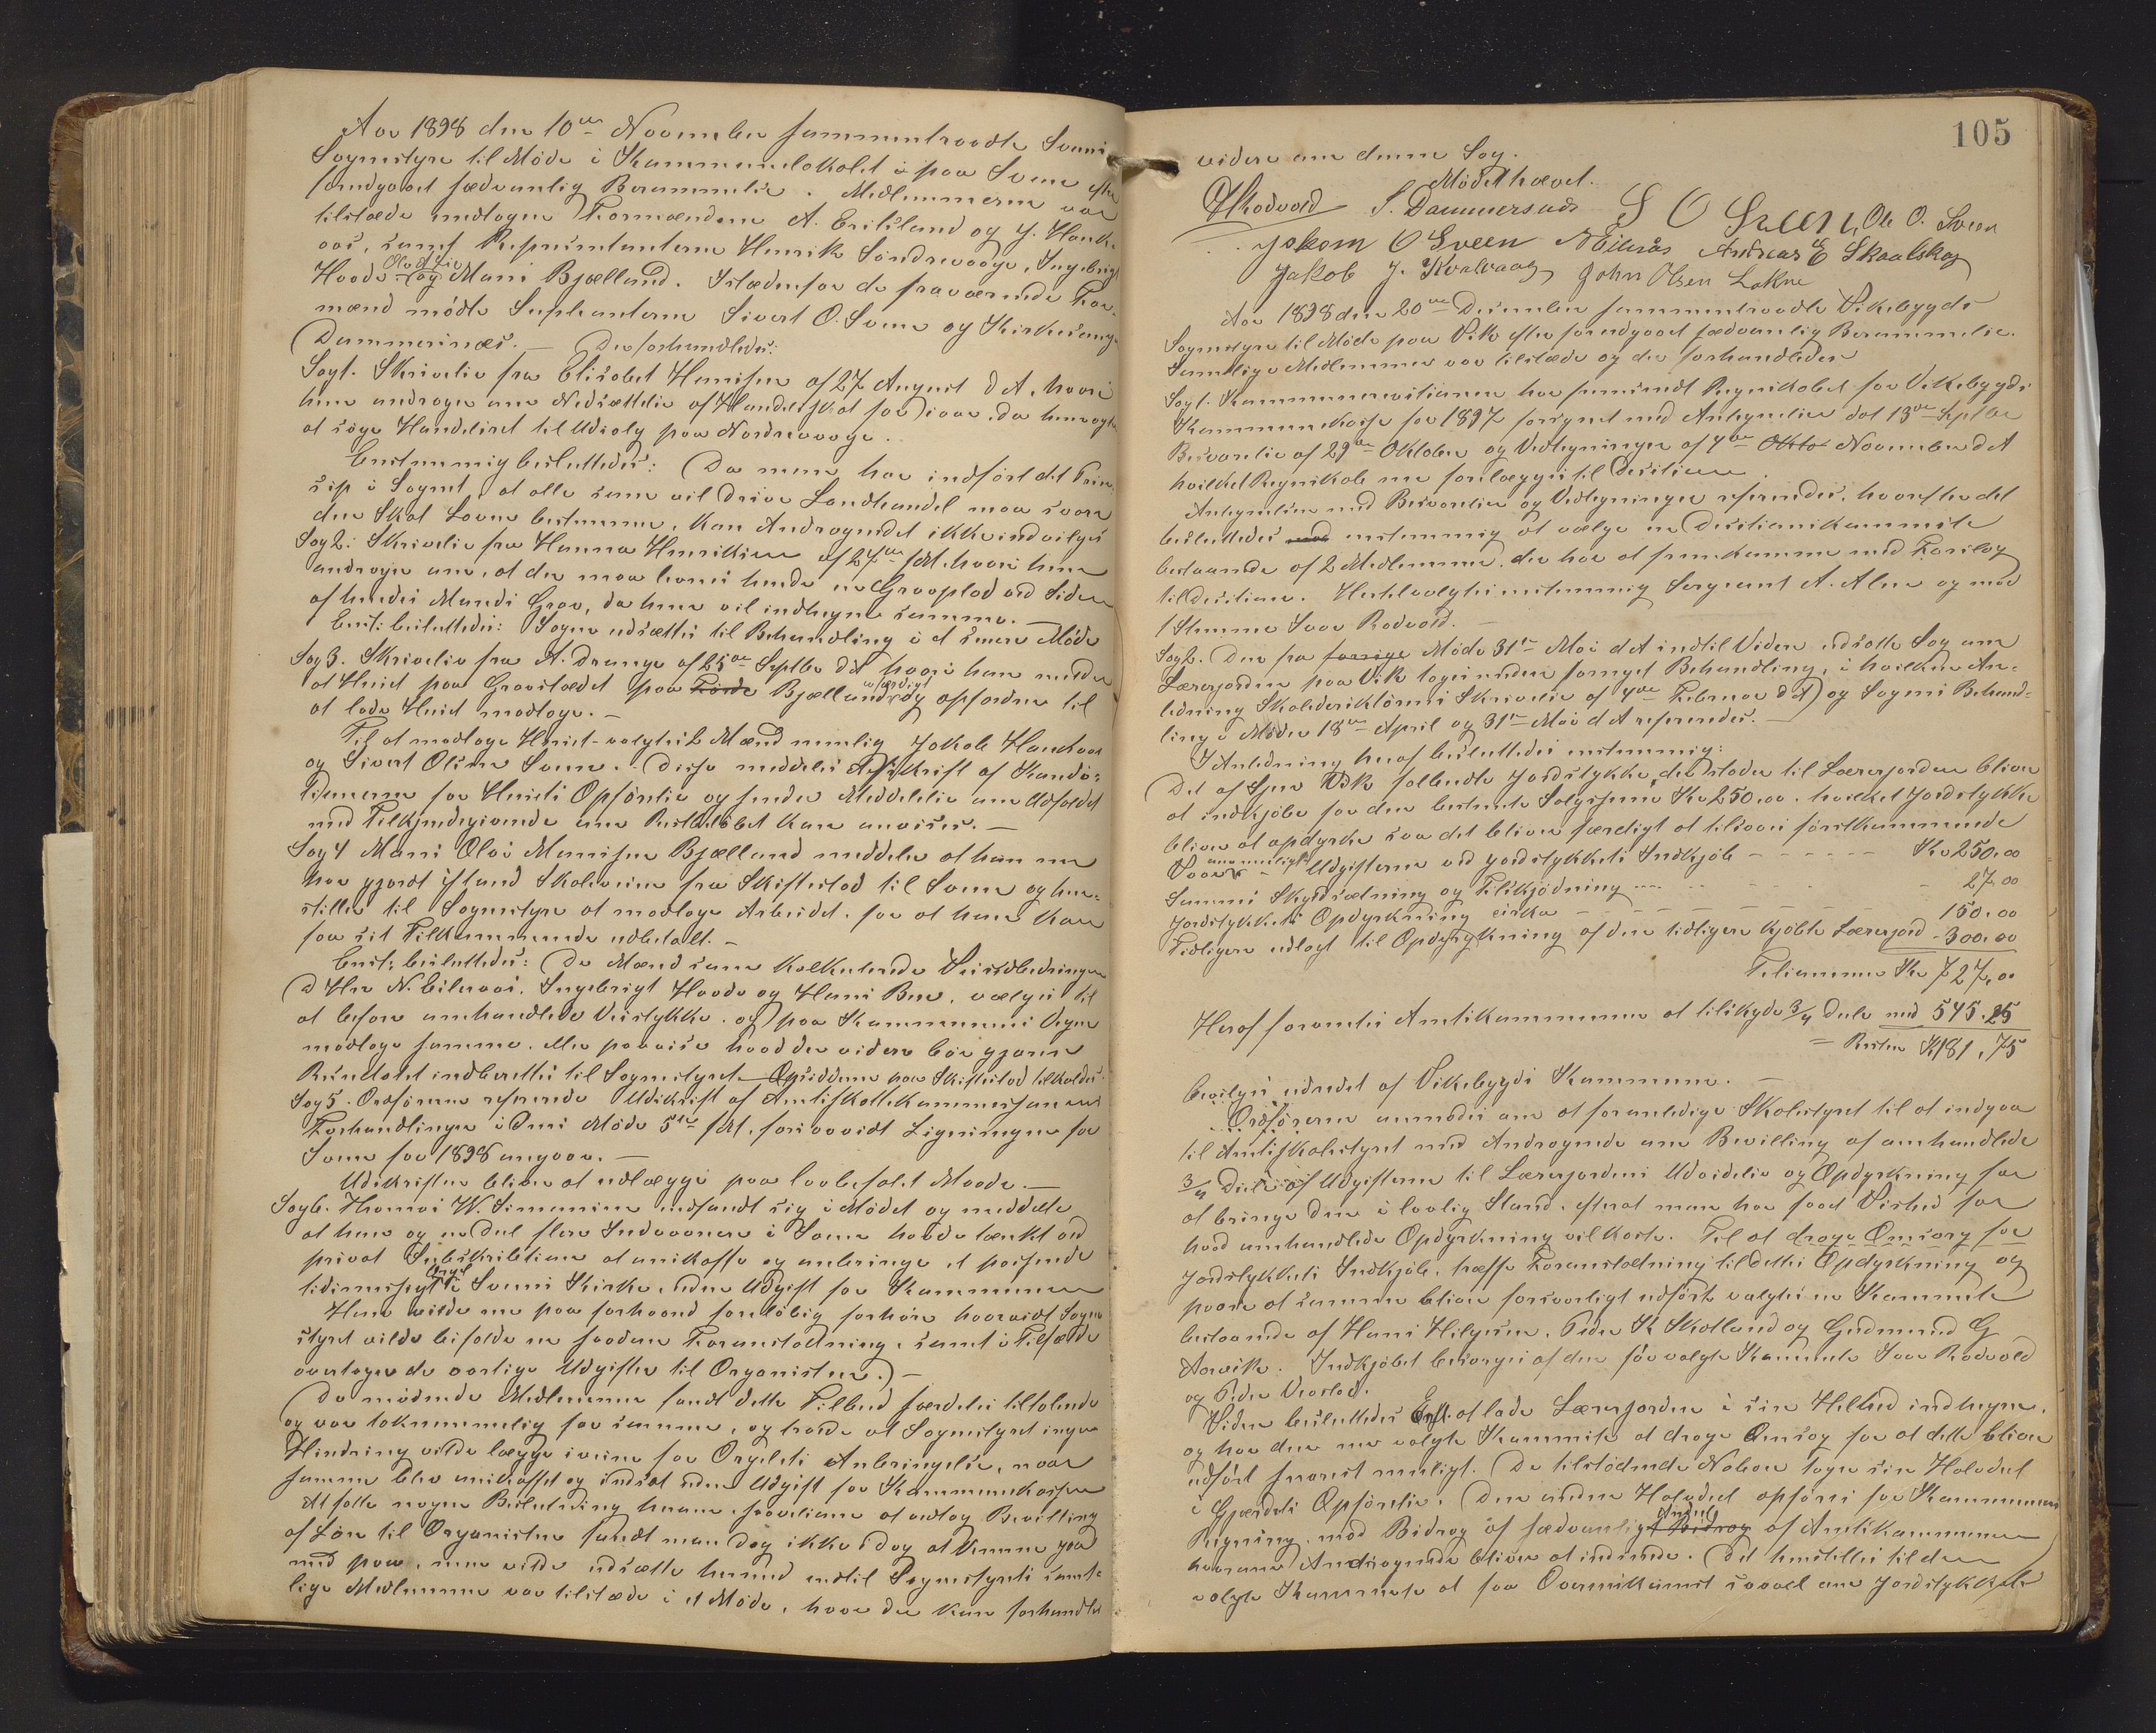 Aar 1898 den 10de November sammentraadte Sveens
Sognestyre til Møde i Kommunelokalet paa Sveen efter
forudgaaet sædvanlig Berammelse. Medlemmerne var
tilstæde undtagen Formændene A. Eriksland og J. Hauk-
aas, samt Repræsentanterne Henrik Søndrevaage, Ingebrigt
Olvd
Hovda og Mons Bjælland. Istædenfor de fraværende For-
mænd mødte Suplianterne Sivert O. Sveen og Kirkesanger
Dammersnæs. — Der forhandledes:
Sag 1. Skrivelse fra Elisabet Hansen af 27 August d A, hvori
hun androger om Nedsættelse af Handelsskat for iaar, da hun agter
at søge Handelsret til Udsalg paa Nordrevaage.
Enstemmig besluttedes: Da man har indført det Prin-
sip i Sognet, at alle som vil drive Landhandel maa svare
den Skat Loven bestemmer, kan Andragendet ikke indvilges
Sag 2: Skrivelse fra Hanna Henriksen af 24de f.M. hvori hun
androger om, at der maa levnes hende en Gravplads ved Siden
af hendes Mands Grav, da hun vil indhegne samme. —
Enst: besluttedes: Sagen udsættes til Behandling i et senere Møde
Sag 3. Skrivelse fra A. Drange af 25de Septbr d A hvori han melder
færdigt
at Huset paa Gravstædet paa Førde Bjælland og opfordrer til
at lade Huset modtage. —
Til at modtage Huset valgtes 2 Mænd nemlig Jakob Haukaas
og Sivert Olsen Sveen. Disse meddeles Afskrift af Kondi-
tionerne for Husets Opførelse og sender Meddelelse om Udfaldet
med Tilkjendegivende om Restbeløbet kan anvises. —
Sag 4 Mons Olai Monsen Bjælland meddeler at han nu
har gjordt istand Skoleveien fra Skiftestad til Sveen og hen-
stiller til Sognestyre at modtage Arbeidet, for at han kan
faa sit Tilkommende udbetalt. —
Enst: besluttedes: De Mænd som kalkulerede Veiudbedringen
D'Hrr N. Eileraas, Ingebrigt Hovda og Hans Bua, vælges til
at befare omhandlede Veistykke, og paa Kommunens Vegne
modtage samme. Men paavise hvad der videre bør gjøres
Resultatet indberettes til Sognestyret. Opsidderne paa Skiftestad tilkaldes.
Sag 5. Ordføreren refererede Udskrift af Amtsskattekommissionens
Forhandlinger i dens Møde 5te f.M. forsaavidt Ligningen for
Sveen for 1898 angaar. —
Udskriften bliver at udlægges paa lovbefalet Maade. —
Sag 6. Thomas W. Simonsen indfandt sig i Mødet og meddelte
at han og en Del flere Indvaanere i Sveen havde tænkt ved
privat Subskribtion at anskaffe og anbringe et passende
Orgel
tidsmessigt i Sveens Kirke, uden Udgift for Kommunen
Han vilde nu paa forhaand foreløbig forhøre hvorvidt Sogne-
styret vilde bifalde en saadan Foranstaltning, samt i Tilfælde
overtage de aarlige Udgifter til Organisten. —
De mødende Medlemmer fandt dette Tilbud særdeles tiltalende
og var taknemmelig for samme, og troede at Sognestyret ingen
Hindring vilde lægge iveien for Orgelets Anbringelse, naar
samme blev anskaffet og indsat uden Udgift for Kommunekassen
At fatte nogen Beslutning herom, saavelsom at vedtage Bevilling
af Løn til Organisten fandt man dog ikke idag at kunne gaa
ind paa, men vilde udsætte hermed indtil Sognestyrets samt-
lige Medlemmer var tilstæde i et Møde, hvor der kan forhandles
105
videre om denne Sag.
Mødet hævet.
J Rødvold S. Dammersnæs S O Sveen, Ole O. Sveen
Jokom O Sveen N Eileraas Andreas E Skaalskog
Jakob J. Kvalvaag John Olsen Lokne
Aar 1898 den 20de Desember sammentraadte Vikebygds
Sognestyre til Møde paa Vik efter forudgaaet sædvanlig Berammelse.
Samtlige Medlemmer var tilstæde og der forhandledes
Sag 1. Kommunerevisionen har fremsendt Regnskabet for Vikebygds
Kommunekasse for 1897 forsynet med Antegnelser dat 13de Septbr
Besvarelse af 29de Oktober og Vedtegninger af 4de Oktor November d A
hvilket Regnskab nu forelægges til Decision.
Antegnelser med Besvarelser og Vedtegninger refereredes, hvorefter det
besluttedes enstemmig at vælge en Decisionskommite
bestaaende af 2 Medlemmer, der har at fremkomme med Forslag
til Decision. Hertil valgtes enstemmig Sergeant A. Alne og mod
1 Stemme Ivar Rødvold. —
Sag 2. Den fra forrige Møde 31te Mai d A indtil Videre udsatte Sag om
Lærerjorden paa Vik toges under fornyet Behandling, i hvilken An-
ledning Skoledirektørens Skrivelse af 4de Februar d A og Sagens Behand-
ling i Møder 18de April og 31te Mai d A refereredes. —
I Anledning heraf besluttedes enstemmig:
Det af Sjur Vik falbudte Jordstykke, der støder til Lærerjorden bliver
at indkjøbe for den bestemte Salgssum Kr 250.00, hvilket Jordstykke
bliver at opdyrke saa det bliver færdigt at tilsaaes førstkommende
om muligt
Vaar. — Udgifterne ved Jordstykkets Indkjøb - - - - - - Kr 250.00
Sammes Skyldsætning og Tilskjødning - - - - - 27.00
Jordstykkets Opdyrkning cirka - - - - - - - - - 150.00
Tidligere udlagt til Opdyrkning af den tidligere kjøbte Lærerjord - 300.00
Tilsammen Kr 727,00
Heraf forventes Amtskommunen at tilskyde 3/4 Dele med 545.25
= Resten K 181,75
bevilges udredet af Vikebygds Kommune. —
Ordføreren anmodes om at foranledige Skolestyret til at indgaa
til Amtsskolestyret med Andragende om Bevilling af omhandlede
3/4 Dele af Udgifterne til Lærerjordens Udvidelse og Opdyrkning for
at bringe den i lovlig Stand, efterat man har faaet Vished for
hvad omhandlede Opdyrkning vil koste. Til at drage Omsorg for
Jordstykkets Indkjøb, træffe Foranstaltning til dettes Opdyrkning og
paase at samme bliver forsvarligt udført valgtes en Kommite
bestaaende af Hans Hilgersen, Peder K Skotland og Gudmund G
Aarvik. Indkjøbet besørges af den før valgte Kommite Ivar Rødvold
og Peder Vearstad.
Videre besluttedes Enst. at lade Lærerjorden i sin Helhed indhegne,
og har den nu valgte Kommite at drage Omsorg for at dette bliver
udført snarest muligt. De tilstødende Naboer tager sin Halvdel
i Gjærdets Opførelse. Den anden Halvdel opføres for Kommunens
Andel
Regning, mod Bidrag af sædvanligt Bidrag af Amtskommunen
hvorom Andragende bliver at indsende. Det henstilles til den
valgte Kommite at faa Overenskomst saavel om Jordstykkets